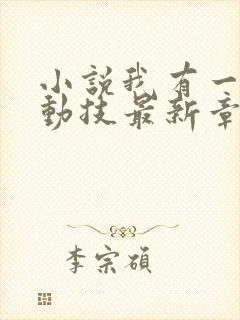 小說我有一
動技最新章
李宗碩